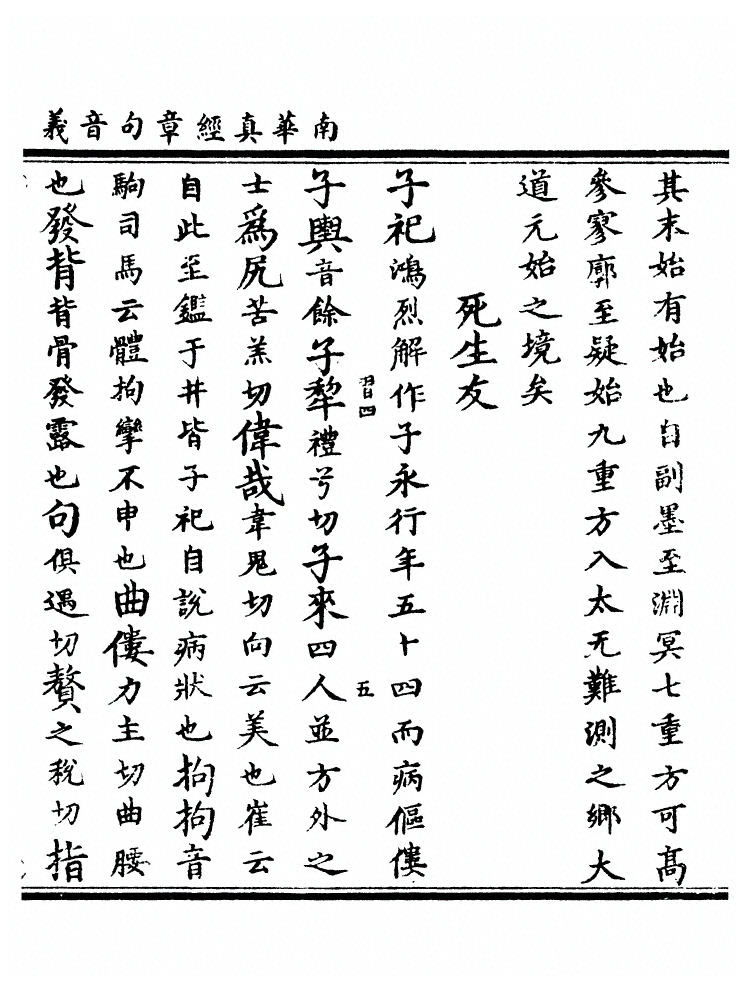 南華真經章句音義
其未始有始也自副墨至淵冥七重方可髙
參寥廓至疑始九重方入太无難測之鄉大
道元始之境矣
死生友
子祀鴻烈解作子永行年五十四而病傴僂
子輿音餘子犂禮兮切子來四人並方外之
習四
五
士為尻苦羔切偉哉韋鬼切向云美也崔云
自此至鑑于井皆子祀自說病狀也拘拘音
駒司馬云體拘攣不申也曲僂力主切曲腰
也發背背骨發露也句俱遇切贅之稅切指